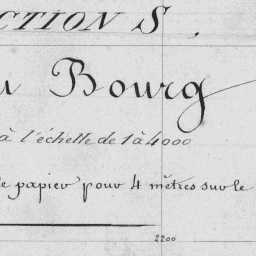 CTION S.
u Bourg
à l'échelle de 1 à 4000
de papier pour 4 mètres sur le
2200